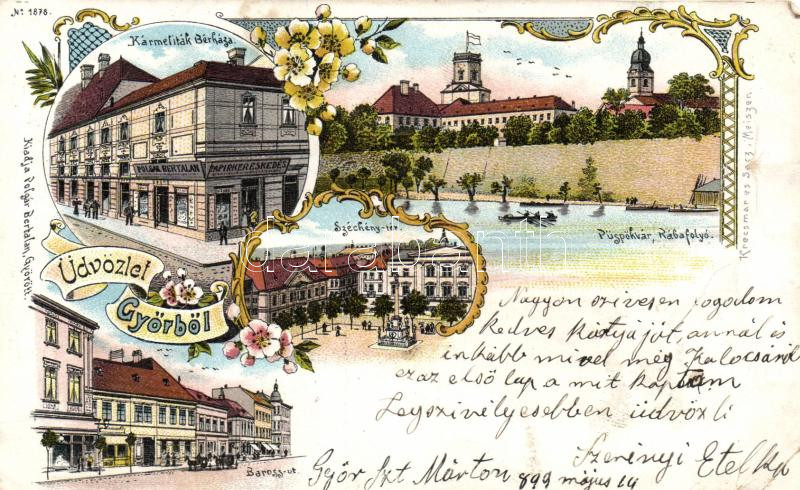 No 1878.
Kármeliták Bérháza.
POLGÁR BERTALAN PAPIRKERESKEDÉS
Kiadja Polgár Bertalan, Győrött.
Krecsmar es Serz, Meiszen
Püspökvár, Rábafolyó.
Széchény-tér.
Üdvözlet
Győrből
Baross-ut.
darabanth
Nagyon szivesen fogadom
kedves kártyáját, annál is
inkább mivel még Kalocsáról
ez az első lap a mit kaptam
Legszivélyesebben üdvözli
Szerényi Etelka
Győr Szt Márton 899 május 14